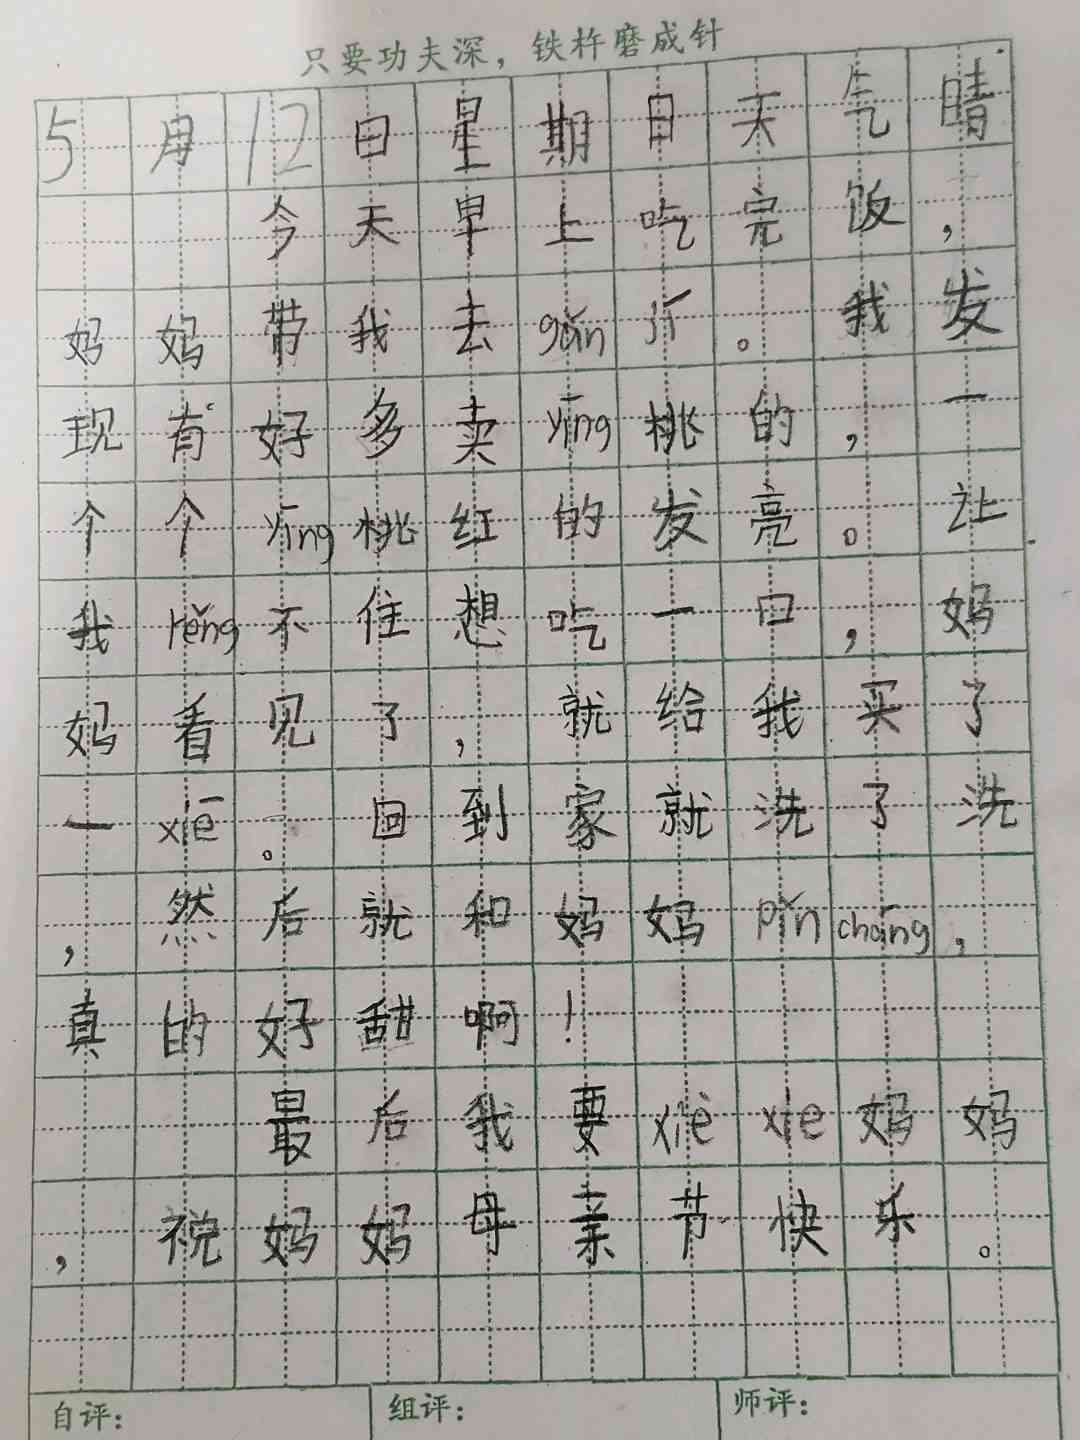 只要功夫深，铁杵磨成针
5月12日星期日天气晴
今天早上吃完饭，
妈妈带我去gǎn jí。我发
现有好多卖yīng桃的，一
个个yīng桃红的发亮。让
我rěng不住想吃一口，妈
妈看见了，就给我买了
一xiē。回到家就洗了洗
，然后就和妈妈pǐn cháng，
真的好甜啊！
最后我要xiè xie妈妈
，祝妈妈母亲节快乐。
自评： 组评： 师评：